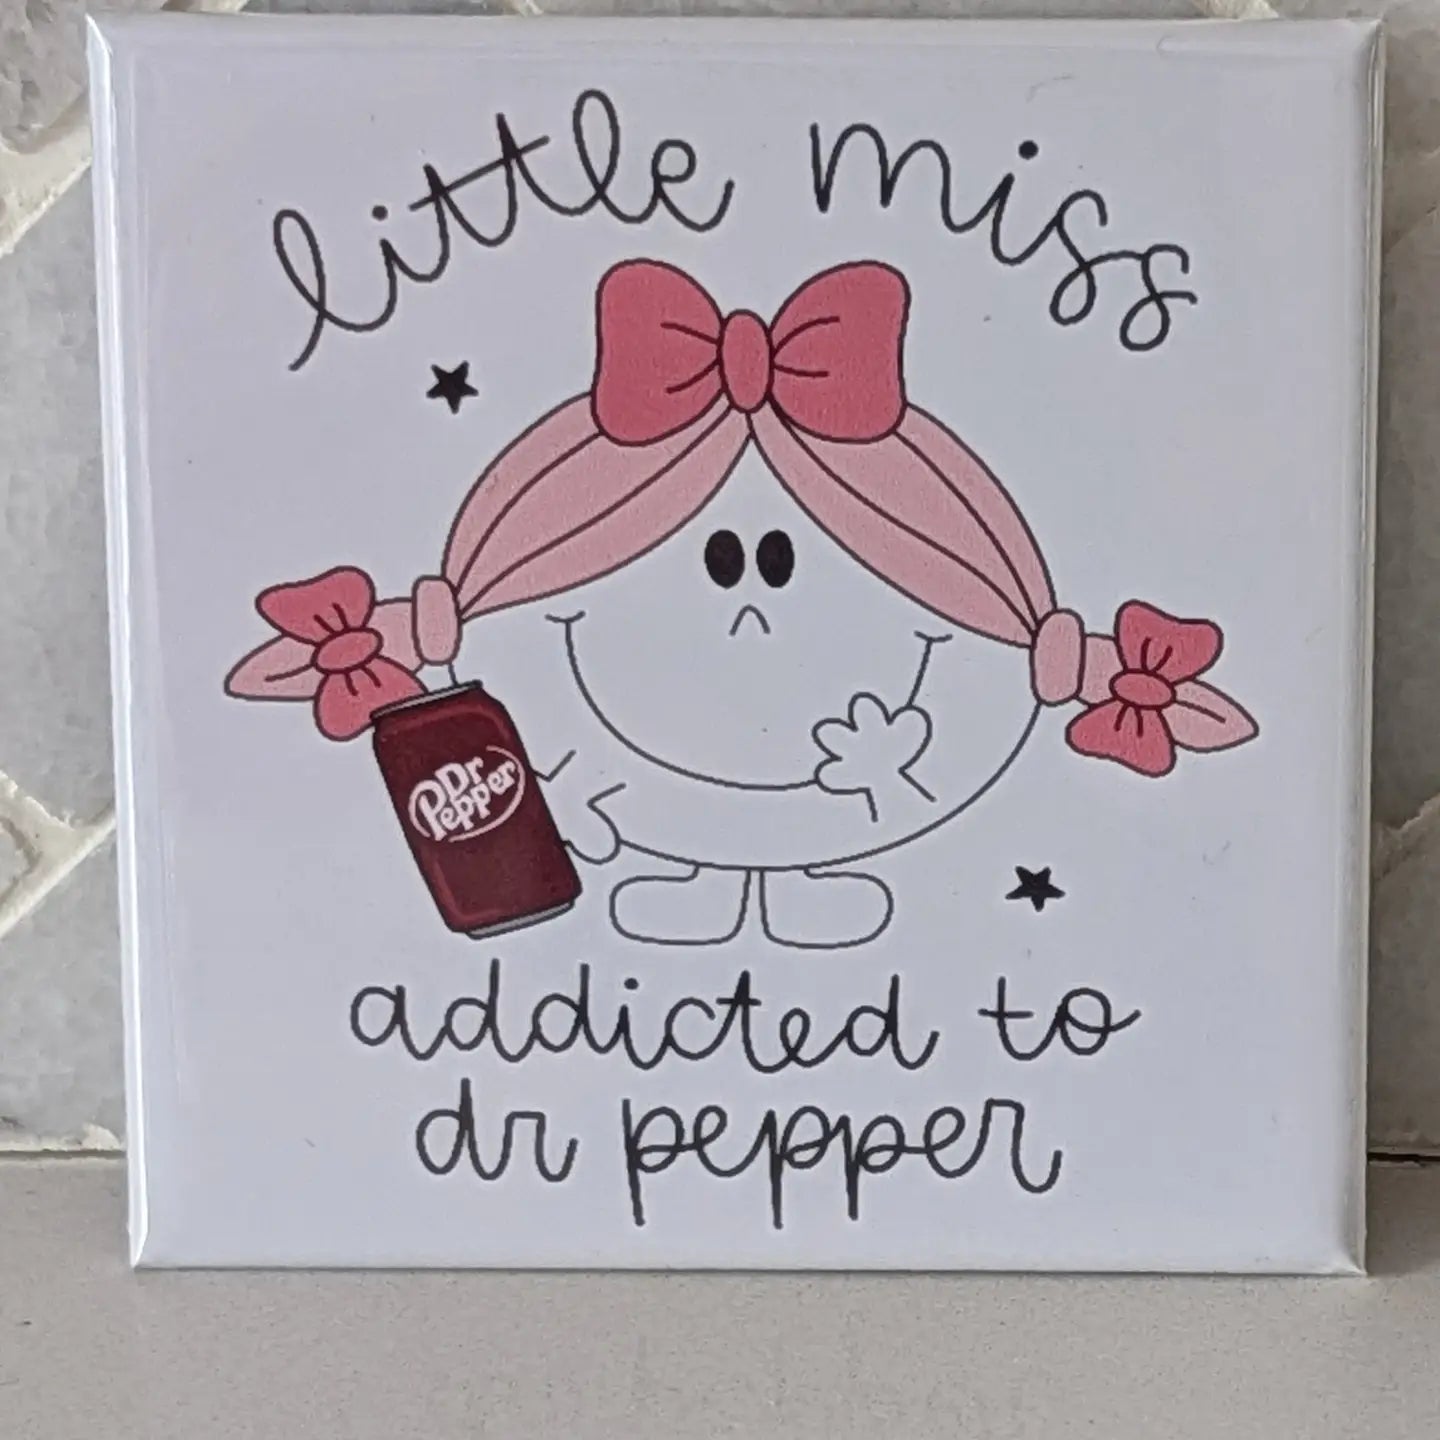 little miss
Dr
Pepper
addicted to
dr pepper